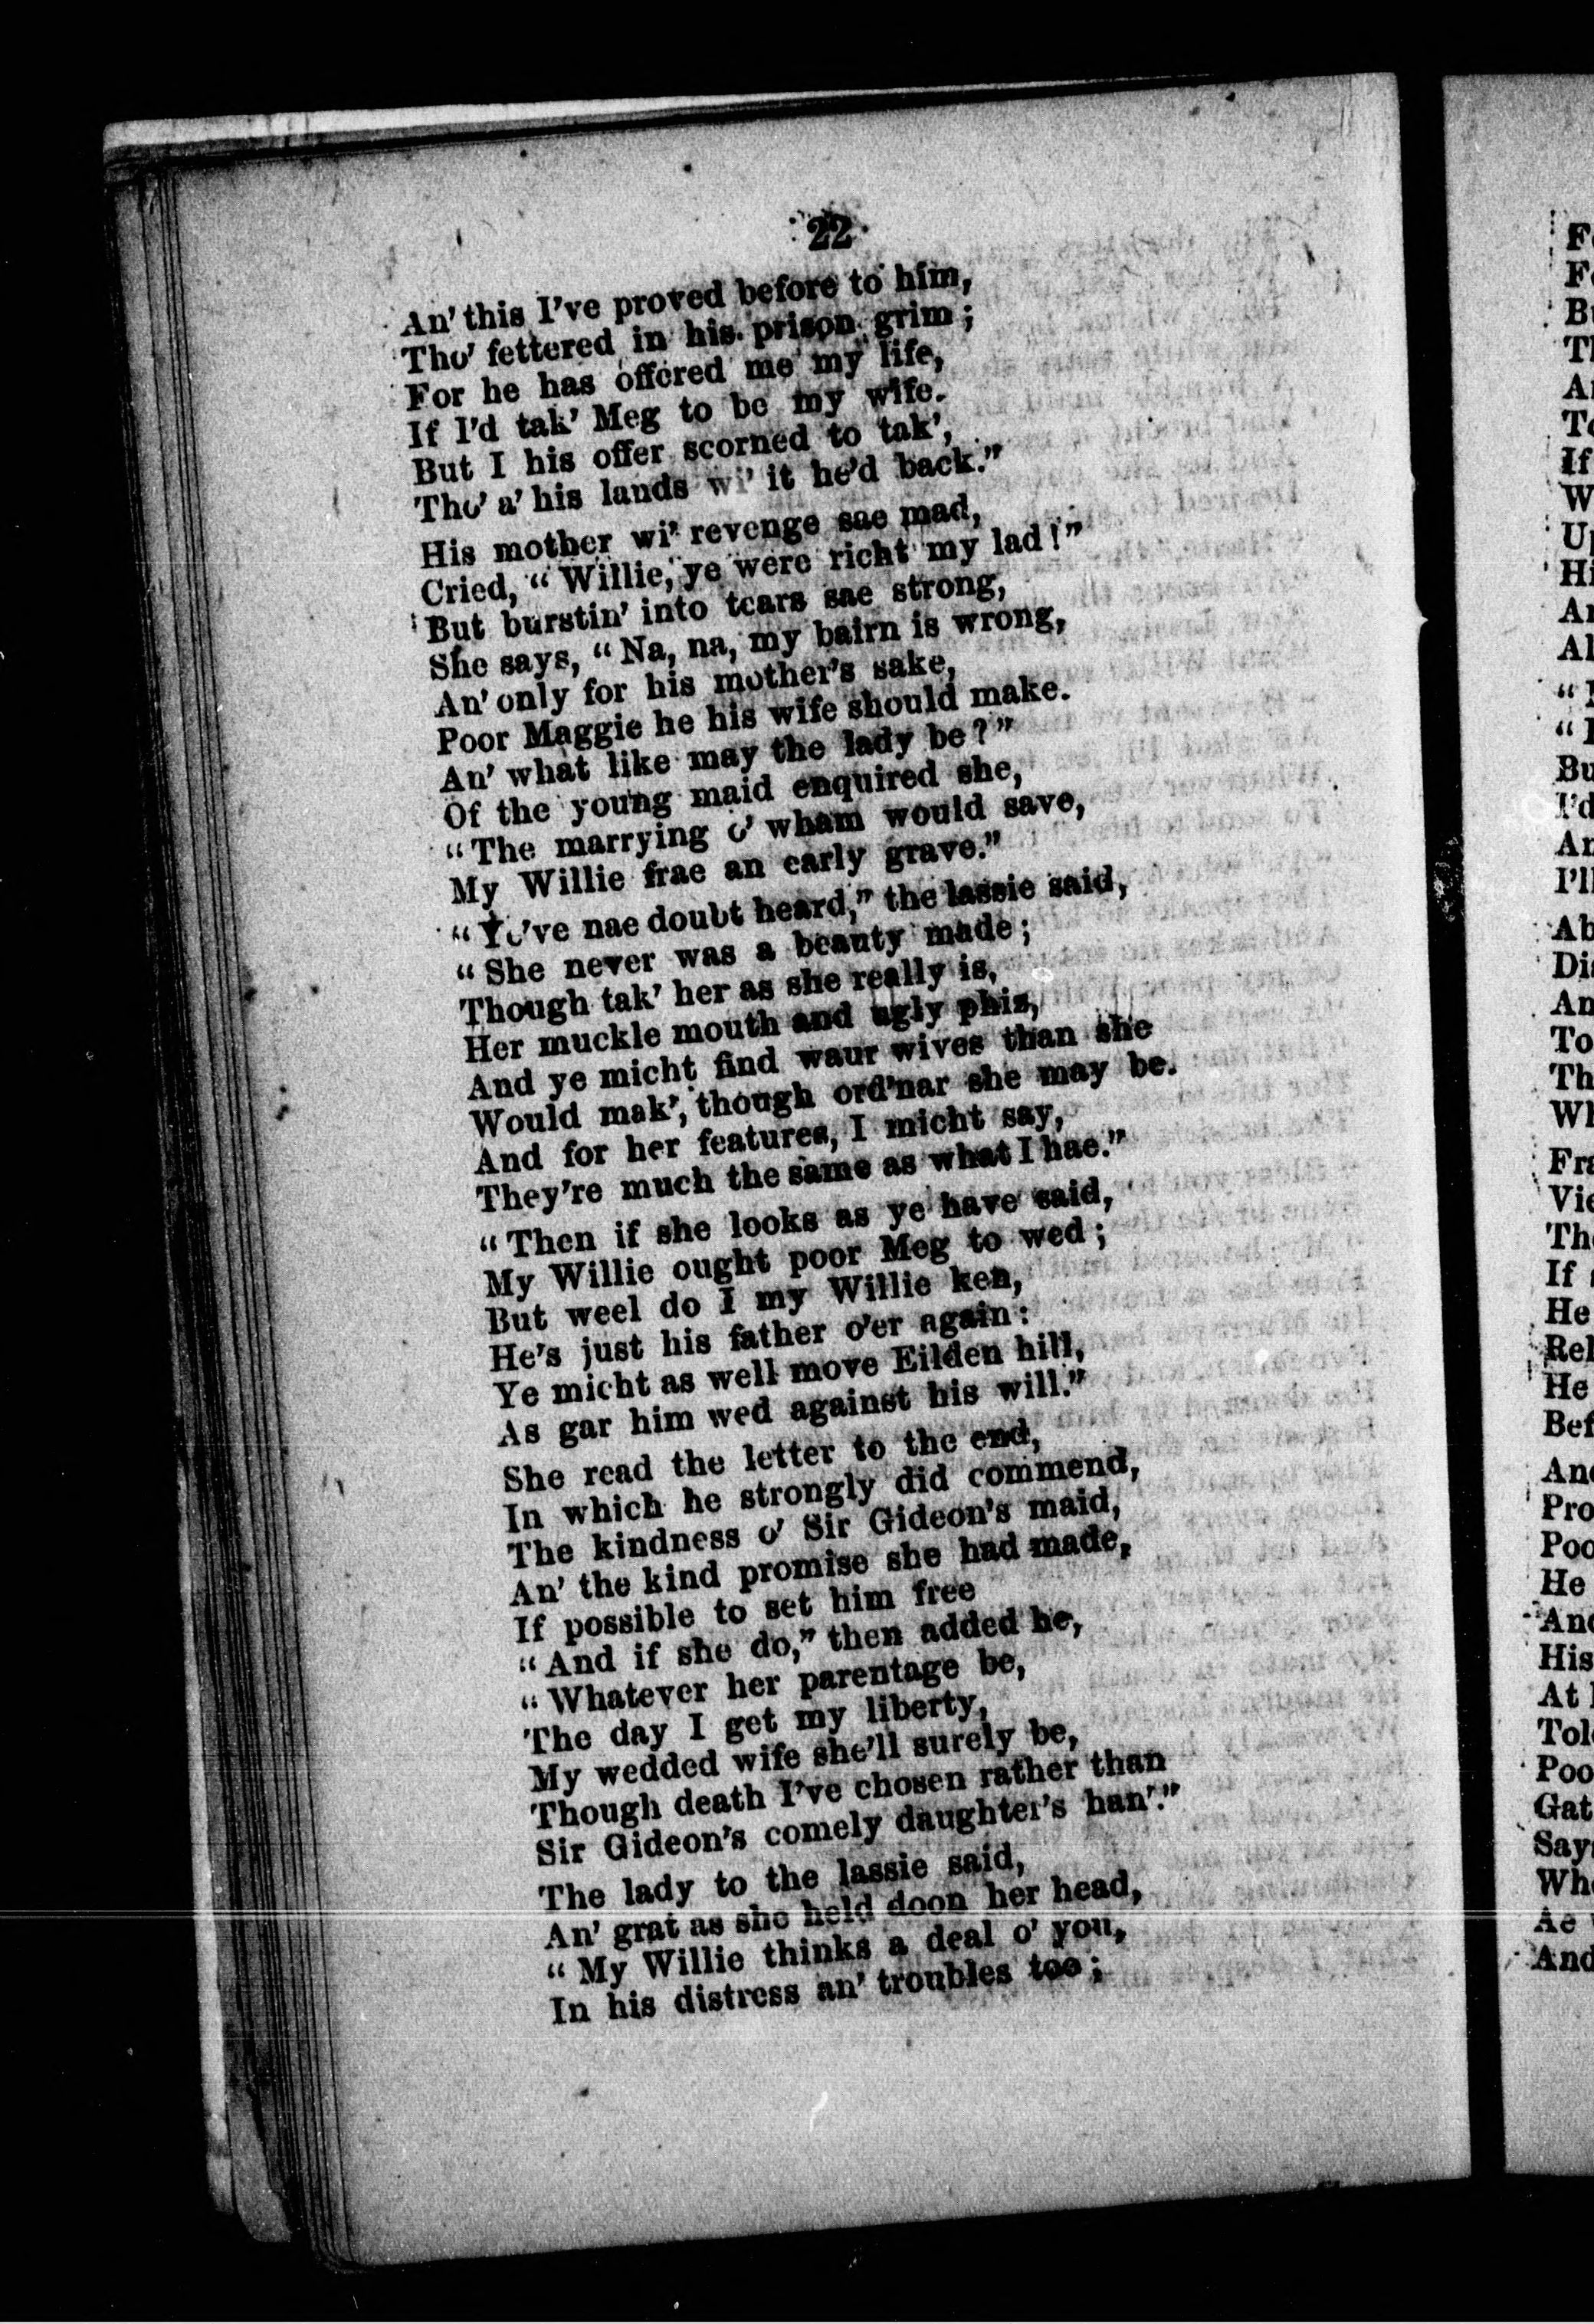 22
An' this I've proved before to him,
Tho' fettered in his prison grim;
For he has offered me my life,
If I'd tak' Meg to be my wife.
But I his offer scorned to tak',
Tho' a' his lands wi' it he'd back."
His mother wi' revenge sae mad,
Cried, "Willie, ye were richt my lad!"
But burstin' into tears sae strong,
She says, "Na, na, my bairn is wrong,
An' only for his mother's sake,
Poor Maggie he his wife should make.
An' what like may the lady be?"
Of the young maid enquired she,
"The marrying o' wham would save,
My Willie frae an early grave."
"Ye've nae doubt heard," the lassie said,
"She never was a beauty made;
Though tak' her as she really is,
Her muckle mouth and ugly phiz,
And ye micht find waur wives than she
Would mak', though ord'nar she may be.
And for her features, I micht say,
They're much the same as what I hae."
"Then if she looks as ye have said,
My Willie ought poor Meg to wed;
But weel do I my Willie ken,
He's just his father o'er again:
Ye micht as well move Eilden hill,
As gar him wed against his will."
She read the letter to the end,
In which he strongly did commend,
The kindness o' Sir Gideon's maid,
An' the kind promise she had made,
If possible to set him free
"And if she do," then added he,
"Whatever her parentage be,
The day I get my liberty,
My wedded wife she'll surely be,
Though death I've chosen rather than
Sir Gideon's comely daughter's han'."
The lady to the lassie said,
An' grat as she held doon her head,
"My Willie thinks a deal o' you,
In his distress an' troubles too;